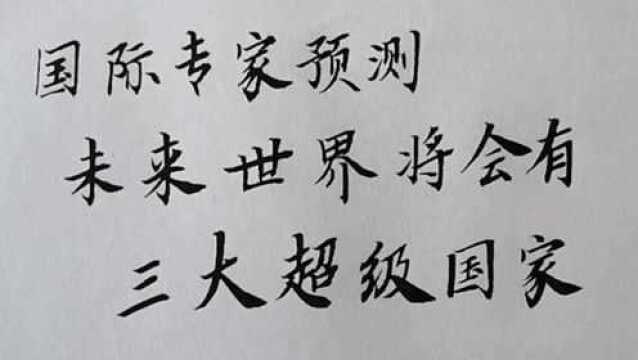 国际专家预测
未来世界将会有
三大超级国家